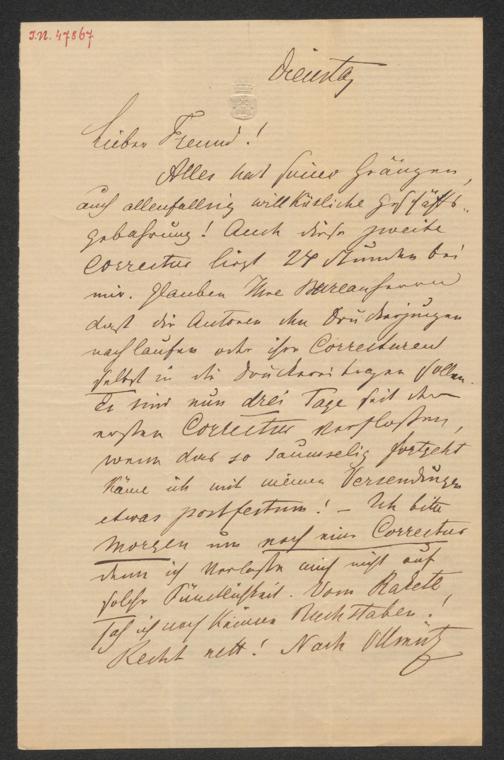 I.N. 47867
Dienstag
Lieber Freund!
Alles hat seine Gränzen,
auch allenfallsig willkürliche Geschäfts-
gebahrung! Auch diese zweite
Correctur liegt 24 Stunden bei
mir. Glauben Ihre Bureauherrn
dass die Autoren den Druckerjungen
nachlaufen oder ihre Correcturen
selbst in die Druckerei tragen sollen.
Es sind nun drei Tage seit der
ersten Correctur verflossen,
wenn das so saumselig fortgeht
käme ich mit meinen Versendungen
etwas postfestum! – Ich bitte
morgen um noch eine Correctur
denn ich verlasse mich nicht auf
solche Pünctlichkeit. Vom Rakete
sah ich noch keinen Buchstaben!
Recht nett! Nach Ollmütz